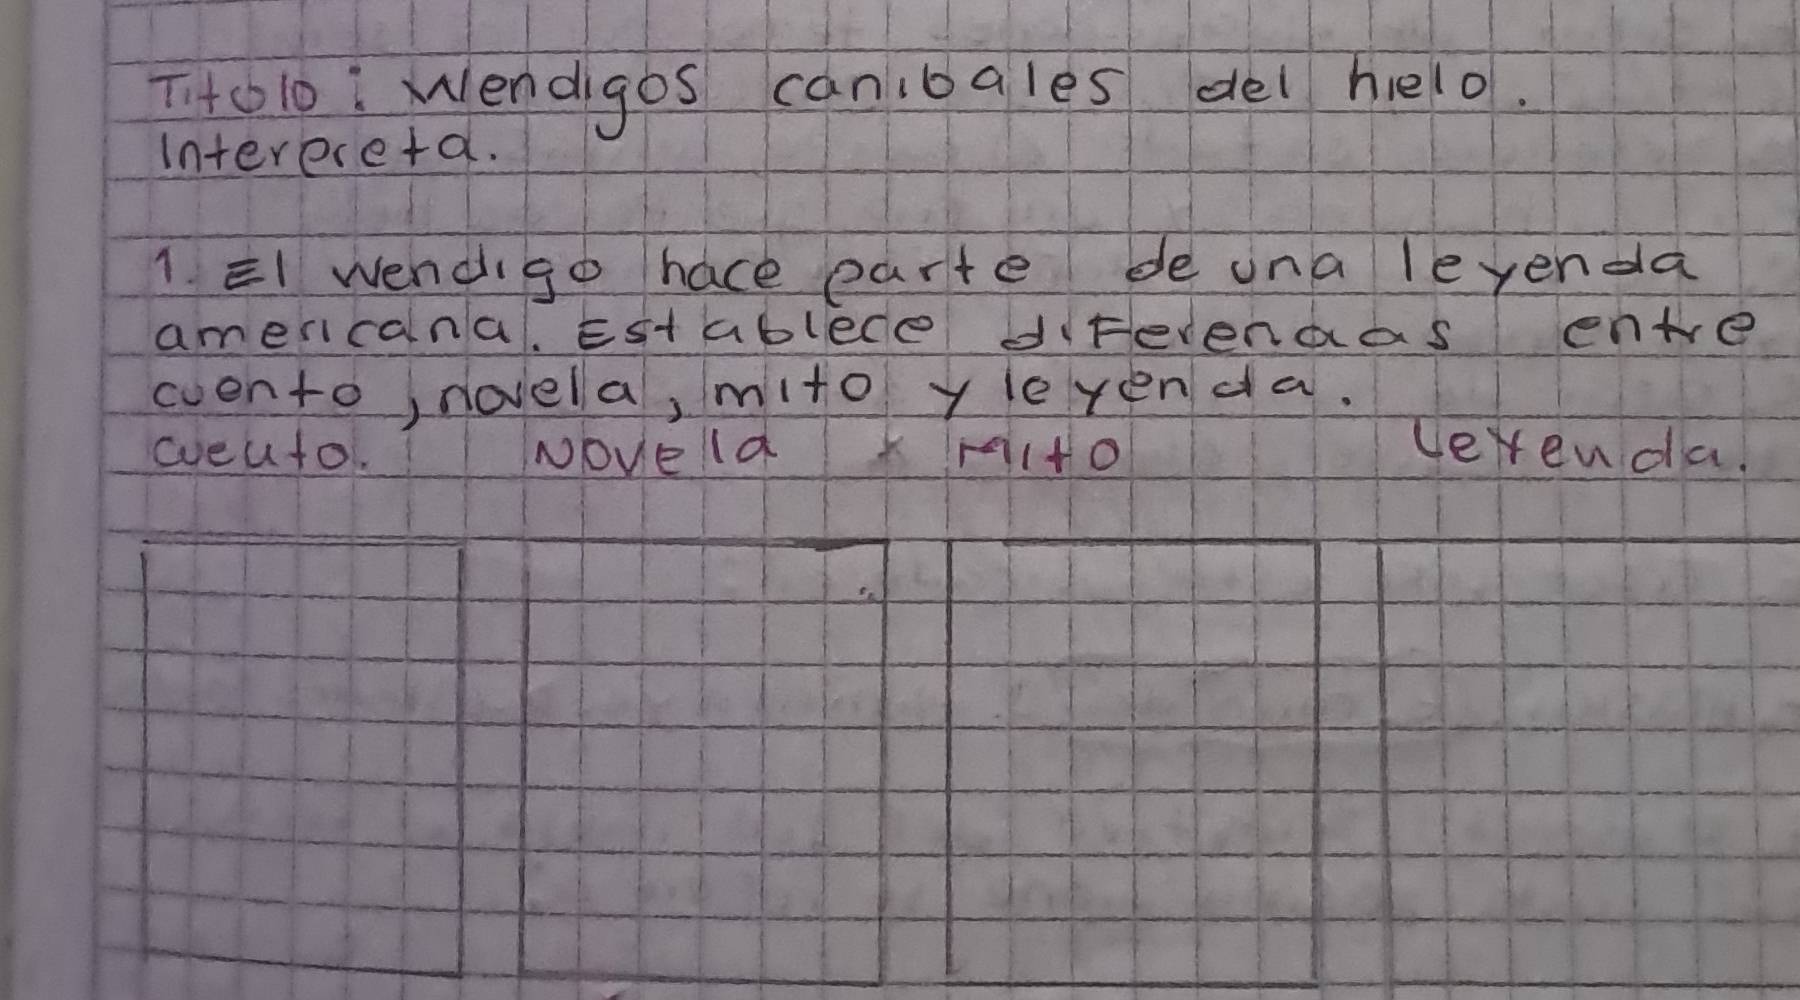 Titulo: Wendigos canibales del hielo.
Interpreta.
1. El wendigo hace parte de una leyenda
americana. Establece diferencias entre
cuento, novela, mito y leyenda.
cuento. Novela Mito Leyenda.